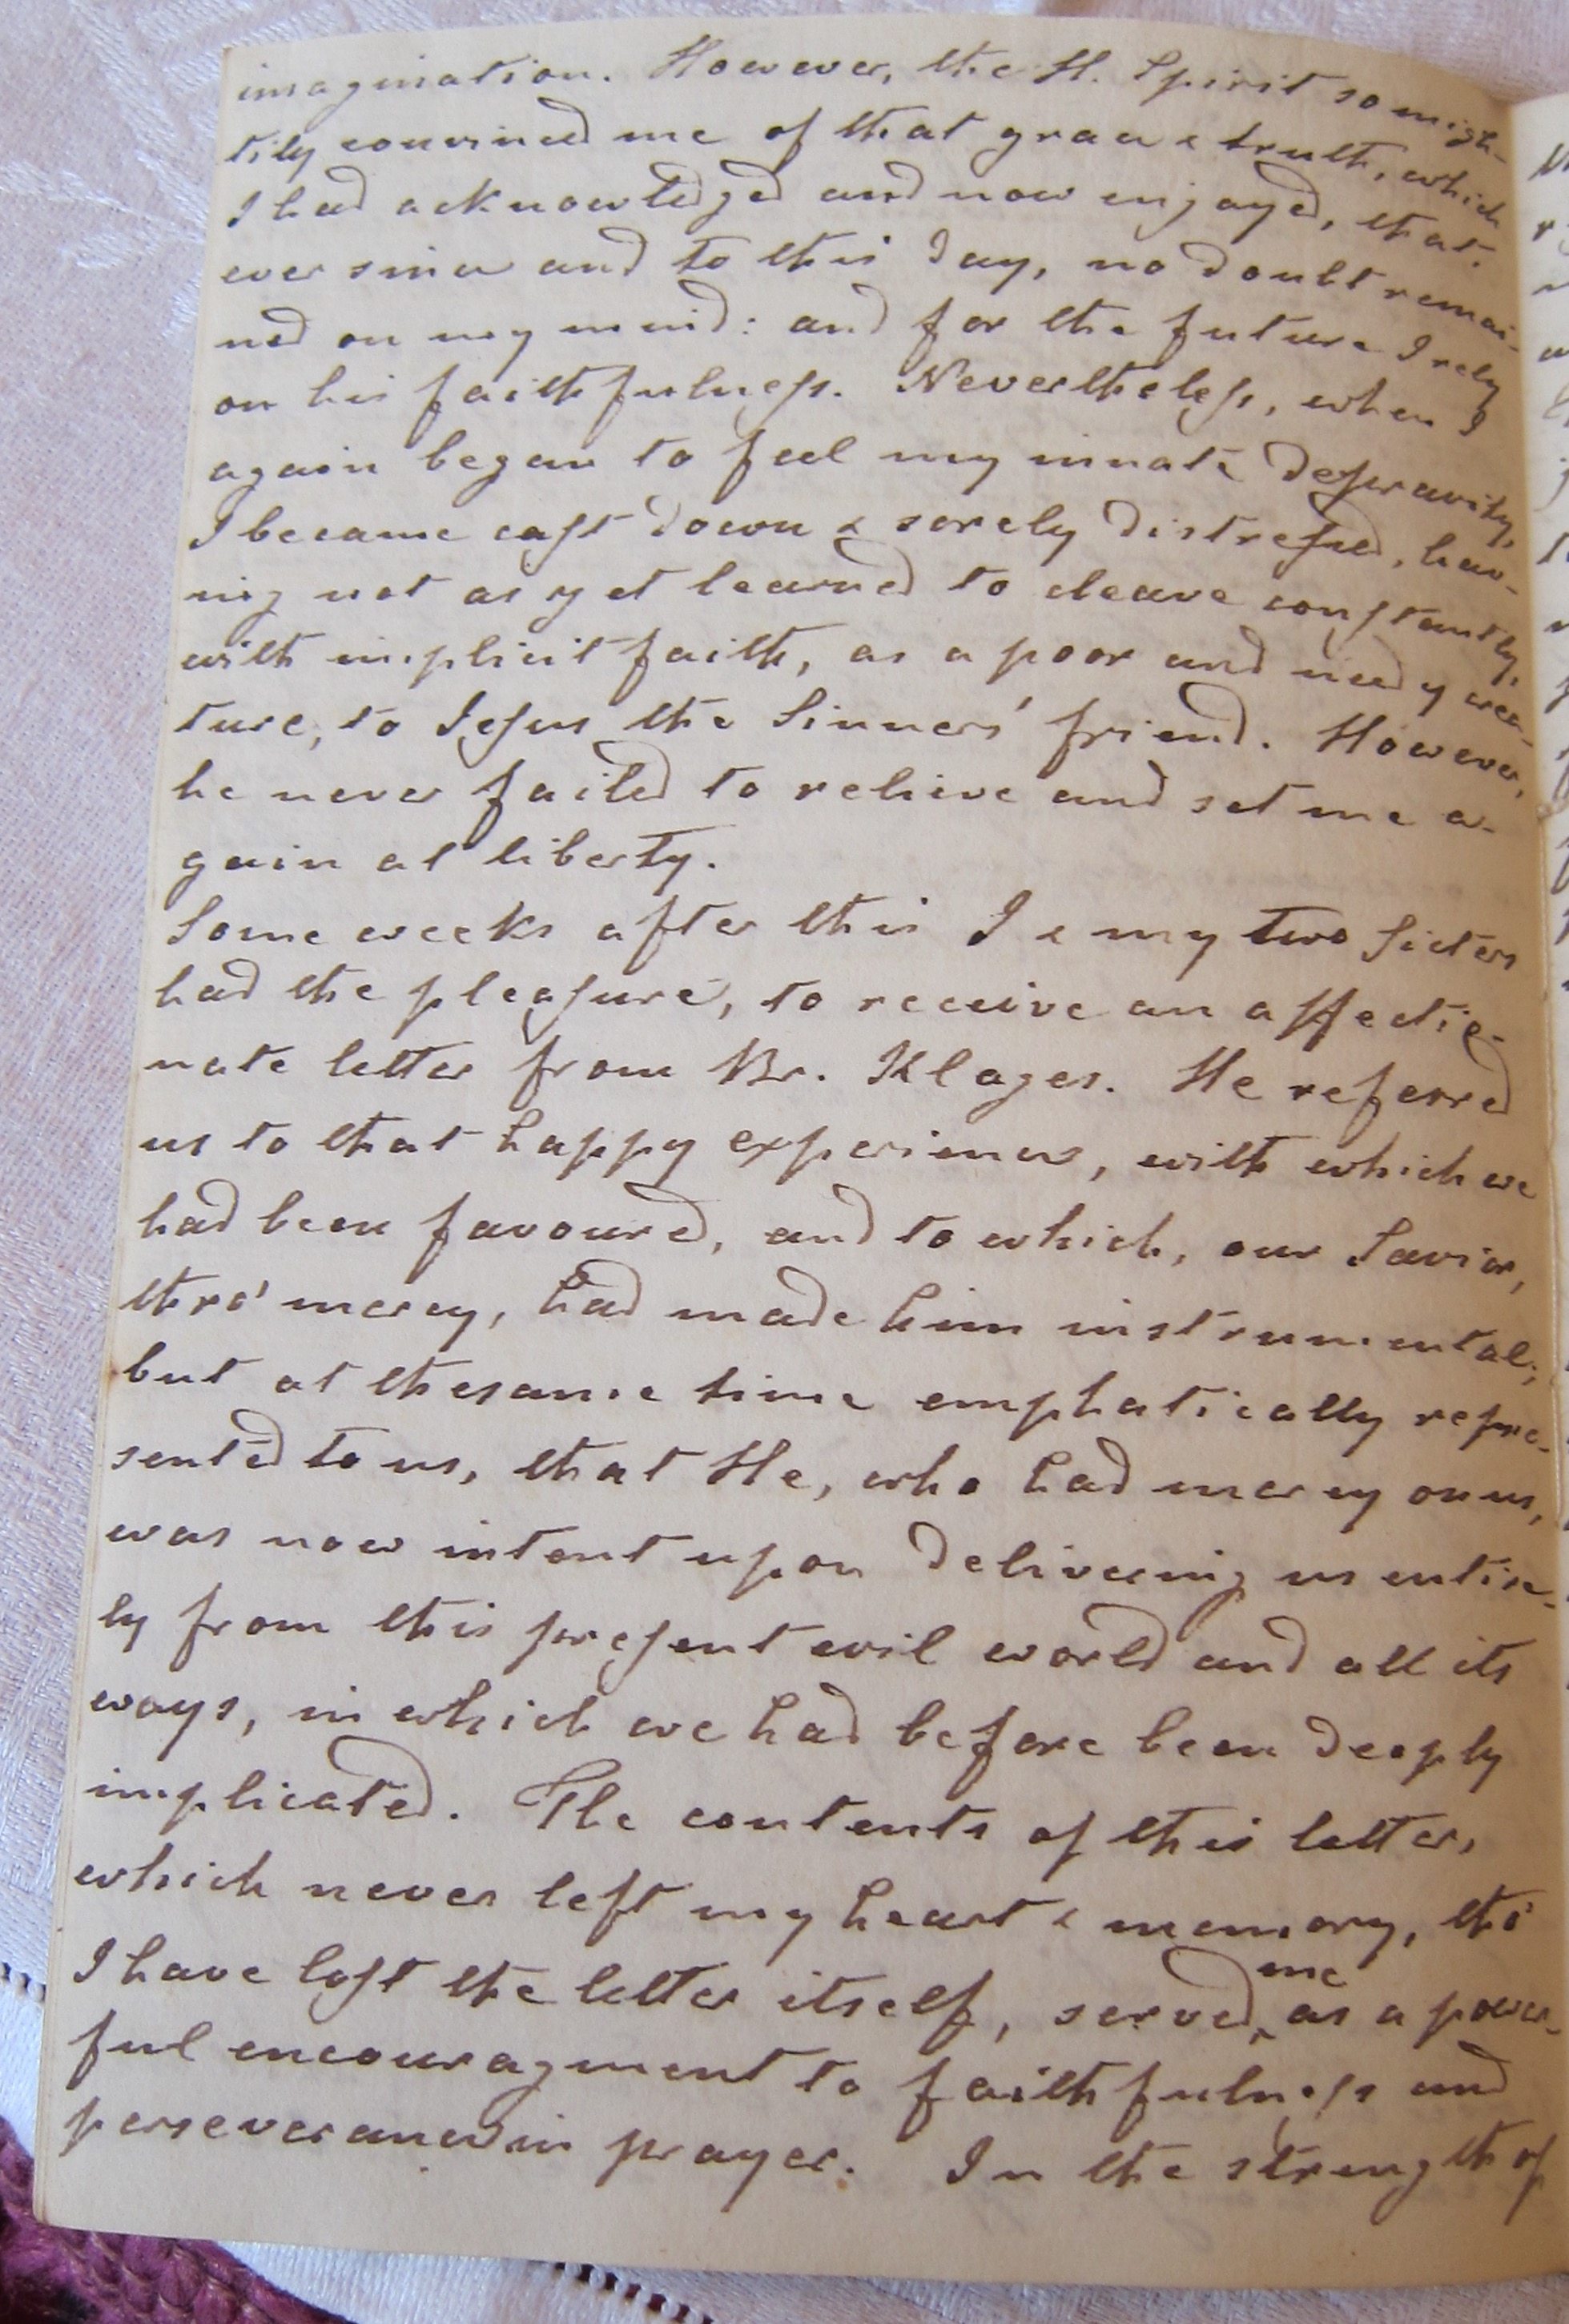 imagination. However, the H. Spirit so migh-
tily convinced me of that grace & truth, which
I had acknowledged and now enjoyed, that
ever since and to this day, no doubt remai-
ned on my mind: and for the future I rely
on his faithfulness. Nevertheless, when I
again began to feel my innate depravity,
I became cast down & sorely distressed, hav-
ing not as yet learned to cleave constantly,
with implicit faith, as a poor and needy crea-
ture, to Jesus the Sinners' friend. However,
he never failed to relieve and set me a-
gain at liberty.
Some weeks after this I & my two Sisters
had the pleasure, to receive an affectio-
nate letter from Br. Klages. He referred
us to that happy experience, with which we
had been favoured, and to which, our Savior,
thro' mercy, had made him instrumental;
but at the same time emphatically repre-
sented to us, that He, who had mercy on us,
was now intent upon delivering us entire-
ly from this present evil world and all its
ways, in which we had before been deeply
implicated. The contents of this letter,
which never left my heart & memory, tho'
I have lost the letter itself, served me as a power-
ful encouragment to faithfulness and
perseverance in prayer. In the strength of